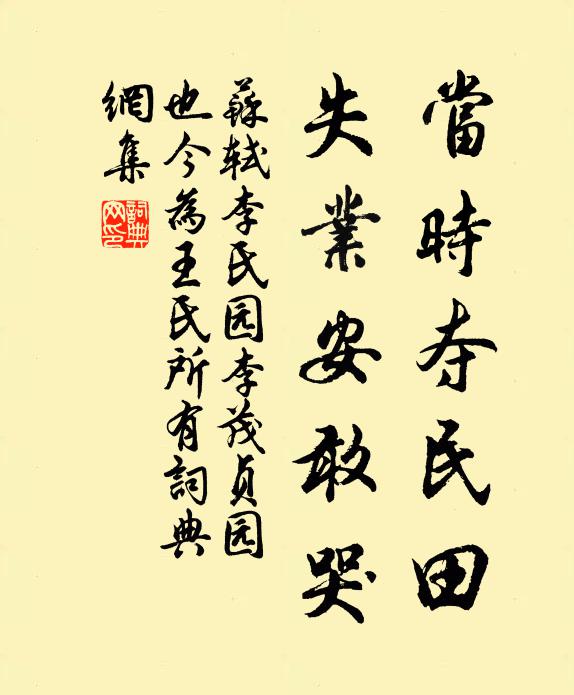 當時夺民田
失業安敢哭
蘇轼李民园李茂貞园
也今為王民所有詞典
網集
詞典
网印